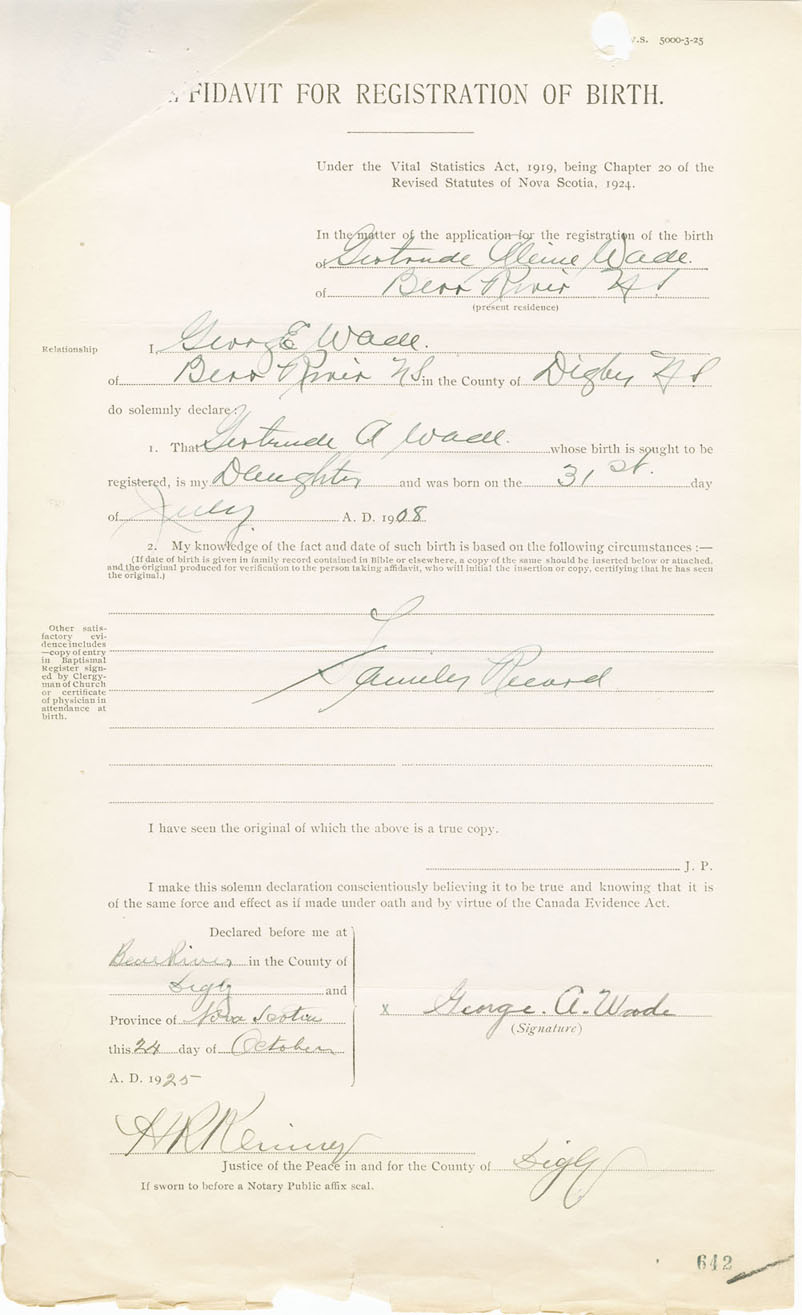 V.S. 5000-3-25
AFFIDAVIT FOR REGISTRATION OF BIRTH.
Under the Vital Statistics Act, 1919, being Chapter 20 of the
Revised Statutes of Nova Scotia, 1924.
In the matter of the application for the registration of the birth
of Gertrude Wade.
of Bear River N S
(present residence)
Relationship
I, George E Wade.
of Bear River N S in the County of Digby N S
do solemnly declare:
1. That Gertrude A Wade. whose birth is sought to be
registered, is my Daughter and was born on the 31 st. day
of July A. D. 1908
2. My knowledge of the fact and date of such birth is based on the following circumstances :—
(If date of birth is given in family record contained in Bible or elsewhere, a copy of the same should be inserted below or attached,
and the original produced for verification to the person taking affidavit, who will initial the insertion or copy, certifying that he has seen
the original.)
Other satis-
factory evi-
dence includes
—copy of entry
in Baptismal
Register sign-
ed by Clergy-
man of Church
or certificate
of physician in
attendance at
birth.
Family Record
I have seen the original of which the above is a true copy.
J. P.
I make this solemn declaration conscientiously believing it to be true and knowing that it is
of the same force and effect as if made under oath and by virtue of the Canada Evidence Act.
Declared before me at
Bear River in the County of
Digby and
Province of Nova Scotia
this 24 day of October
A. D. 1925
x George. A. Wade
(Signature)
H R Kinney
Justice of the Peace in and for the County of Digby
If sworn to before a Notary Public affix seal.
642